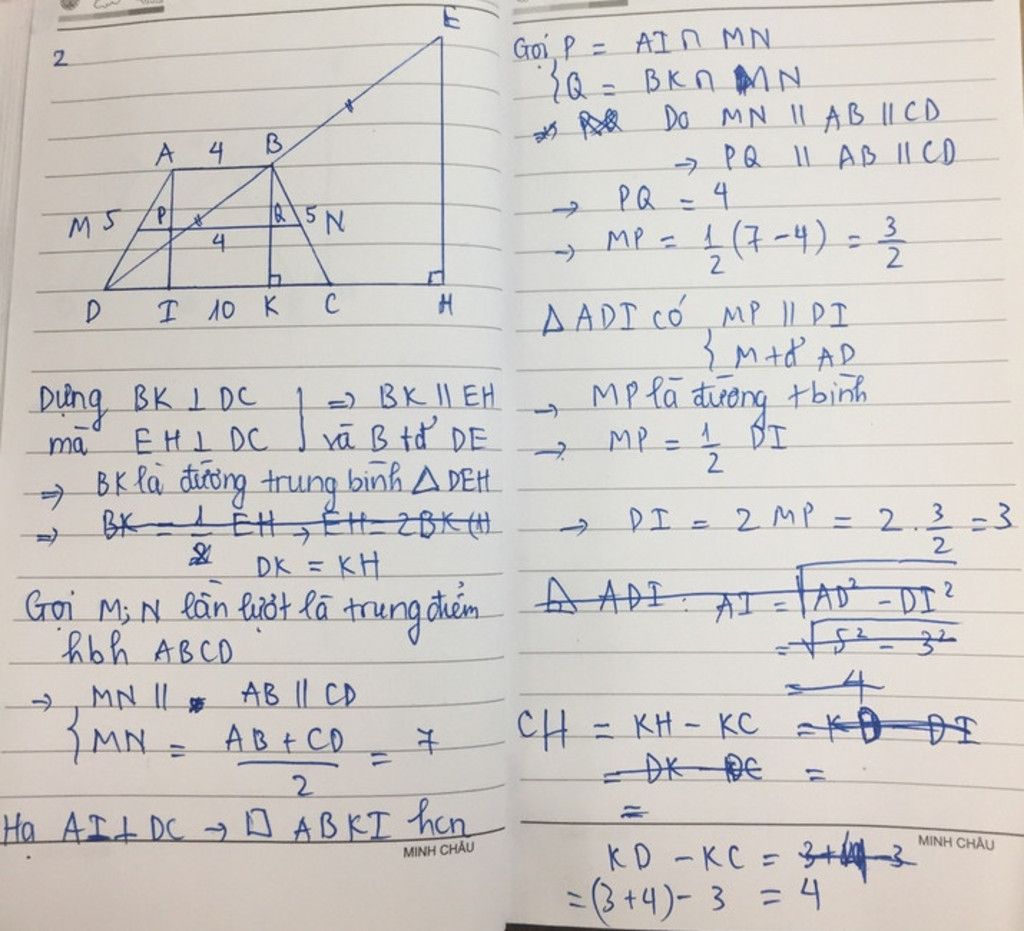 2
E
A 4 B
M 5 P Q 5 N
4
D I 10 K C H
Dựng BK ⊥ DC } => BK // EH
mà EH ⊥ DC } và B tđ' DE
=> BK là đường trung bình △ DEH
=> BK = 1/2 EH → EH = 2BK (H
DK = KH
Gọi M; N lần lượt là trung điểm
hbh ABCD
→ MN // AB // CD
{ MN = (AB + CD)/2 = 7
Hạ AI ⊥ DC → □ ABKI hcn
MINH CHÂU
Gọi P = AI ∩ MN
{ Q = BK ∩ MN
Do MN // AB // CD
→ PQ // AB // CD
→ PQ = 4
→ MP = 1/2 (7 - 4) = 3/2
△ ADI có MP // DI
{ M tđ' AD
→ MP là đường tbình
→ MP = 1/2 DI
→ DI = 2 MP = 2 . 3/2 = 3
△ ADI : AI = √(AD² - DI²)
= √(5² - 3²)
= 4
CH = KH - KC = KD - DI
= DK - DC =
=
MINH CHÂU
KD - KC = 3+4-3
= (3+4) - 3 = 4